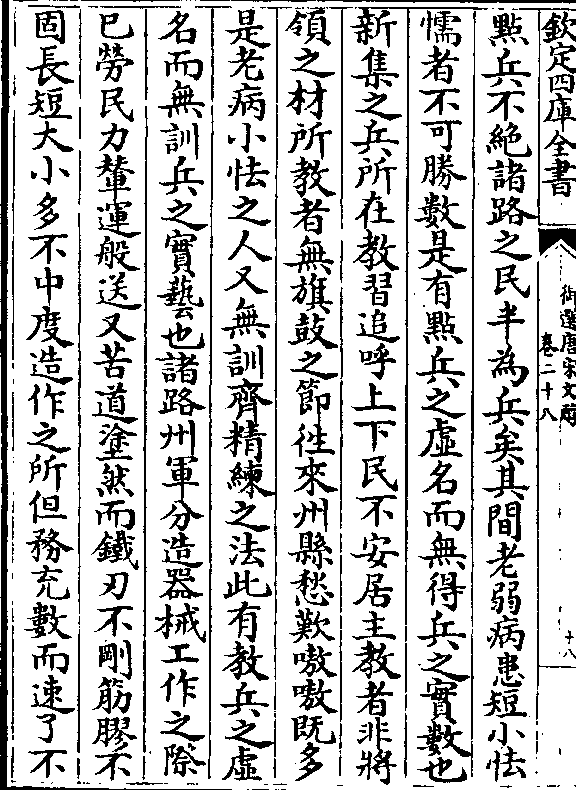 欽定四庫全書
御選唐宋文醇
卷二十八
十八
點兵不絶諸路之民半為兵矣其間老弱病患短小怯
懦者不可勝數是有點兵之虚名而無得兵之實數也
新集之兵所在教習追呼上下民不安居主教者非將
領之材所教者無旗鼓之節徃來州縣愁歎嗷嗷既多
是老病小怯之人又無訓齊精練之法此有教兵之虚
名而無訓兵之實藝也諸路州軍分造器械工作之際
已勞民力輦運般送又苦道塗然而鐵刃不剛筋膠不
固長短大小多不中度造作之所但務充數而速了不